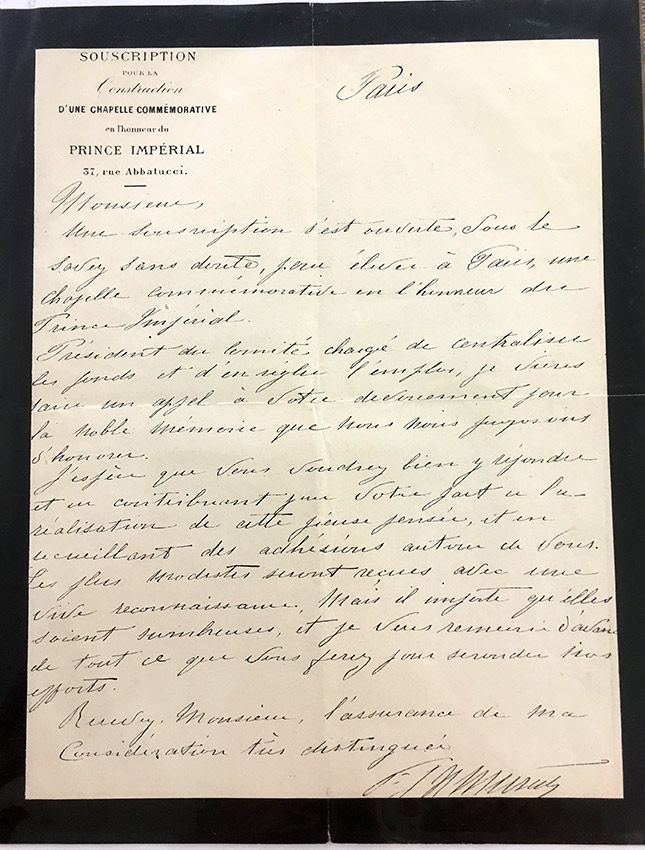 SOUSCRIPTION
POUR LA
Construction
D'UNE CHAPELLE COMMÉMORATIVE
en l'honneur du
PRINCE IMPÉRIAL
37, rue Abbatucci.
Paris
Monsieur,
Une souscription s'est ouverte, vous le
savez sans doute, pour élever à Paris, une
chapelle commemorative en l'honneur du
Prince Impérial.
Président du Comité chargé de centraliser
les fonds et d'en régler l'emploi, je viens
faire un appel à votre devouement pour
la noble memoire que nous nous proposons
d'honorer.
J'espère que vous voudrez bien y répondre
et en contribuant pour votre part à la
réalisation de cette pieuse pensée, et en
recueillant des adhésions autour de vous.
Les plus modestes seront reçues avec une
vive reconnaissance. Mais il importe qu'elles
soient nombreuses, et je vous remercie d'avance
de tout ce que vous ferez pour seconder nos
efforts.
Recevez, Monsieur, l'assurance de ma
Considération très distinguée